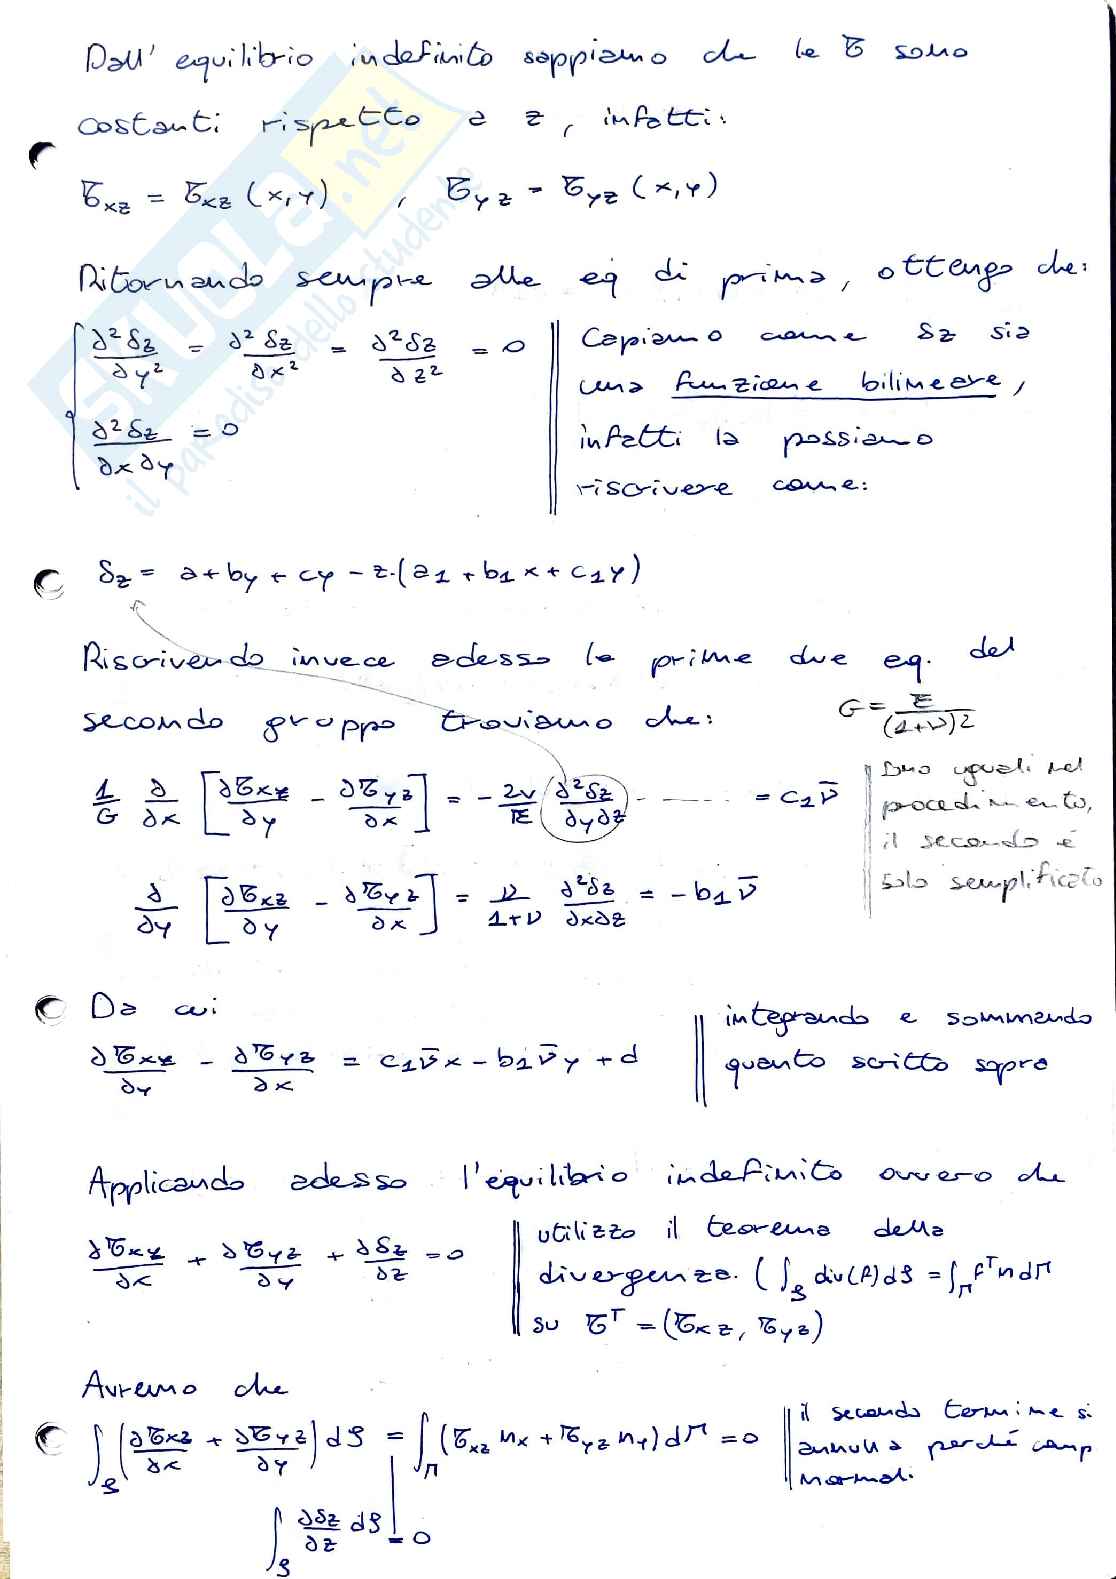 Dall' equilibrio indefinito sappiamo che le τ sono
costanti rispetto a z, infatti:
τxz = τxz (x,y) , τyz = τyz (x,y)
Ritornando sempre alle eq di prima, ottengo che:
∂²δz/∂y² = ∂²δz/∂x² = ∂²δz/∂z² = 0
∂²δz/∂x∂y = 0
Capiamo come δz sia
una funzione bilineare,
infatti la possiamo
riscrivere come:
δz = a + by + cy - z·(a1 + b1x + c1y)
Riscrivendo invece adesso le prime due eq. del
secondo gruppo troviamo che:
G = E/(1+ν)2
1/G ∂/∂x [∂τxz/∂y - ∂τyz/∂x] = - 2ν/E (∂²δz/∂y∂z) - ------ = c1ν̄
∂/∂y [∂τxz/∂y - ∂τyz/∂x] = ν/1+ν ∂²δz/∂x∂z = - b1ν̄
Sono uguali nel
procedimento,
il secondo è
solo semplificato
Da cui
∂τxz/∂y - ∂τyz/∂x = c1ν̄x - b1ν̄y + d
integrando e sommando
quanto scritto sopra
Applicando adesso l'equilibrio indefinito ovvero che
∂τxz/∂x + ∂τyz/∂y + ∂δz/∂z = 0
utilizzo il teorema della
divergenza. (∫S div(f)dS = ∫Γ fᵀn dΓ
su τᵀ = (τxz, τyz)
Avremo che
∫S (∂τxz/∂x + ∂τyz/∂y) dS = ∫Γ (τxz nx + τyz ny) dΓ = 0
∫S ∂δz/∂z dS = 0
il secondo termine si
annulla perché comp
normali.
SKUOLA.net
il paradiso dello studente